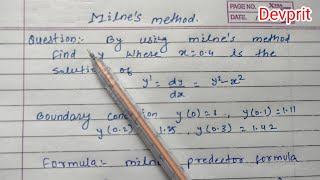 Milne's method.
PAGE No.
Devprit
Question:- By using milne's method
Find y where x=0.4 is the
Solution of
y' = dy/dx = y²-x²
Boundary condition y(0)=1, y(0.1)=1.11
y(0.2)=1.25, y(0.3)=1.42
Formula:- milne predector formula